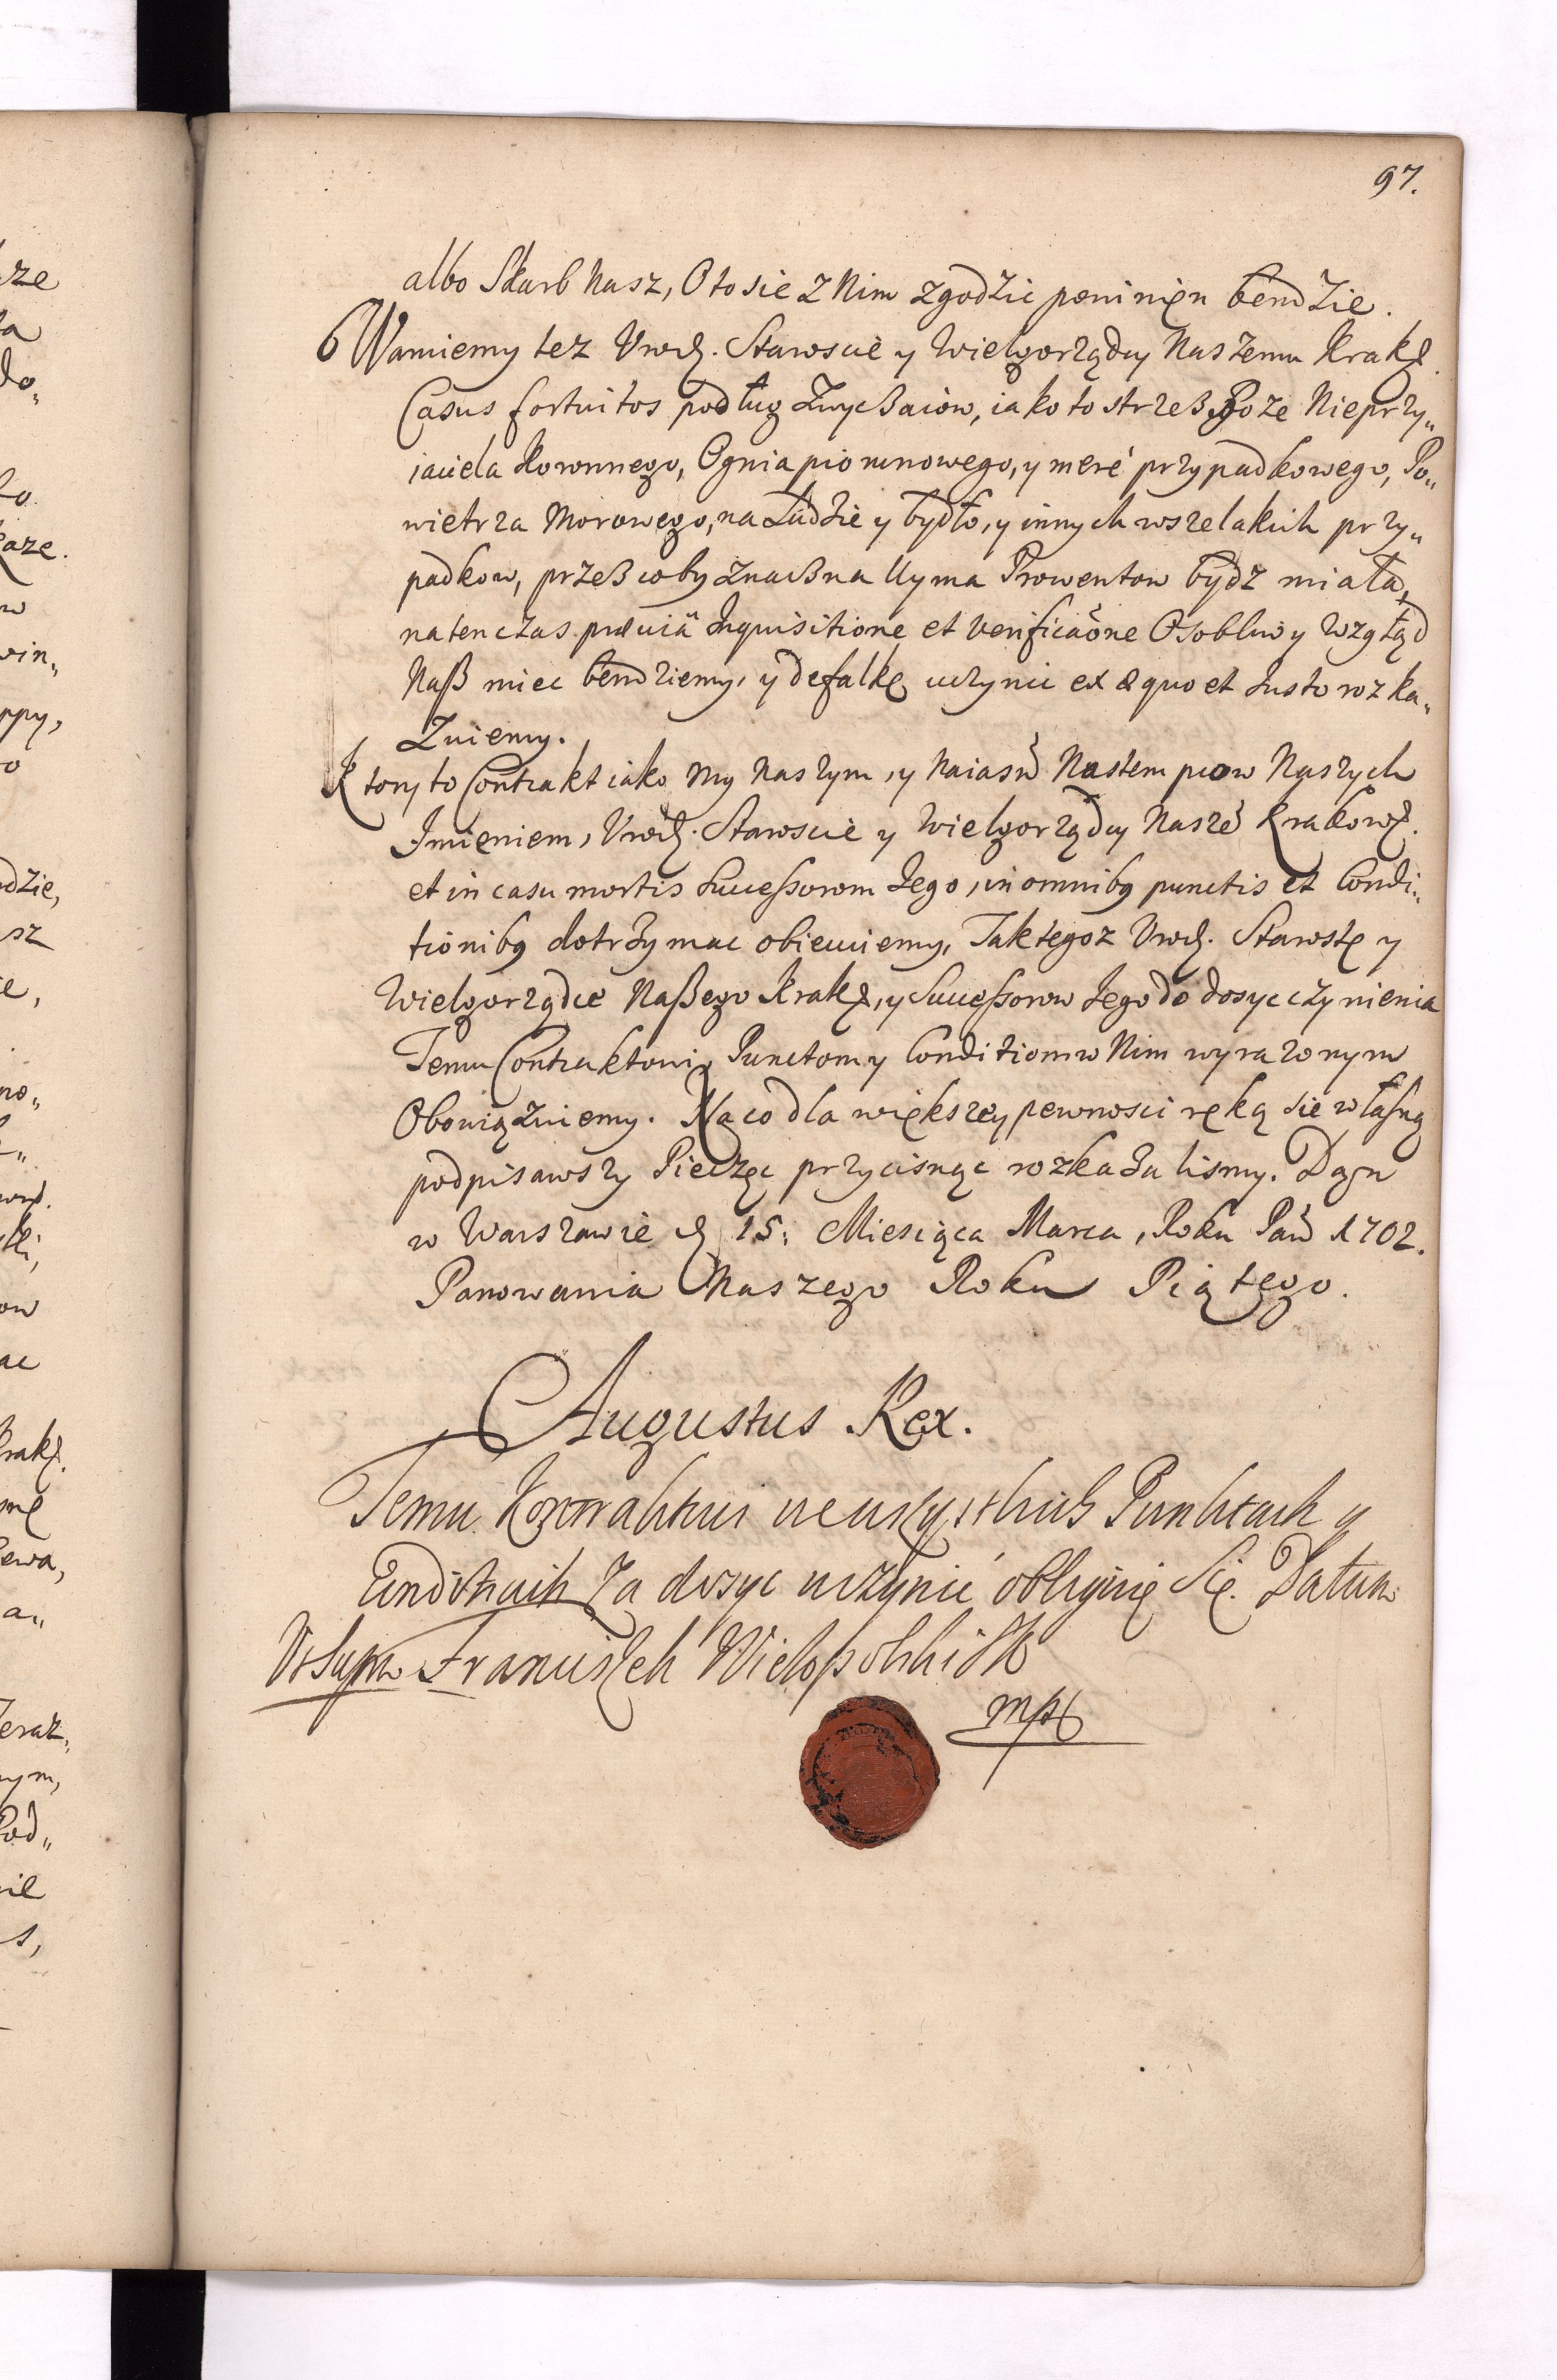 97.
albo Skarb Nasz, O to sie z Nim zgodzic powinięn bendzie.
6 Waruiemy tez Vrodz. Starosćie y Wielgorządcy Naszemu Krakę.
Casus fortuitos podług Zwyczaiow, iako to strzeß Boze Nieprzy„
iaciela koronnego, Ognia piorunowego, y meré przypadkowego, Po„
wietrza Morowego, na Ludzie y bydło, y innych wszelakich przy„
padkow, przeß coby znaczna Uyma Prowentow bydz miała,
natenczas prævia Inquisitione et Verificaone Osobliwy wzgląd
Naß miec bendziemy, y defalkę uczynic ex æquo et Iusto rozka„
Zuiemy.
Ktory to Contrakt iako my Naszym, y Naiasn Nastempcow Naszych
Imieniem, Vrodz. Starosćie y Wielgorządcy Nasze Krakowę.
et in casu mortis Successorom Iego, in omnibq punctis et Condi„
tionibq dotrzymac obiecuiemy, Tak tegoz Vrodz. Starostę y
Wielgorządce Naßego Krakę, y Successorow Iego do dosyc czynienia
Temu Contraktowi, Punctom y Conditiom w Nim wyrazonym
Obowiązuiemy. Na co dla większey pewnosci ręką sie własną
podpisawszy Pieczęc przycisnąc rozkazalismy. Dan
w Warszawie d 15. Miesiąca Marca, Roku Pan 1702.
Panowania Naszego Roku Piątego.
Augustus Rex.
Temu Kontraktui we wszystkich Punktach y
Kondictiach Za dosyc uczynić obliguię Się. Datum
Vt Supra Franciszek Wielopolski SK
mp